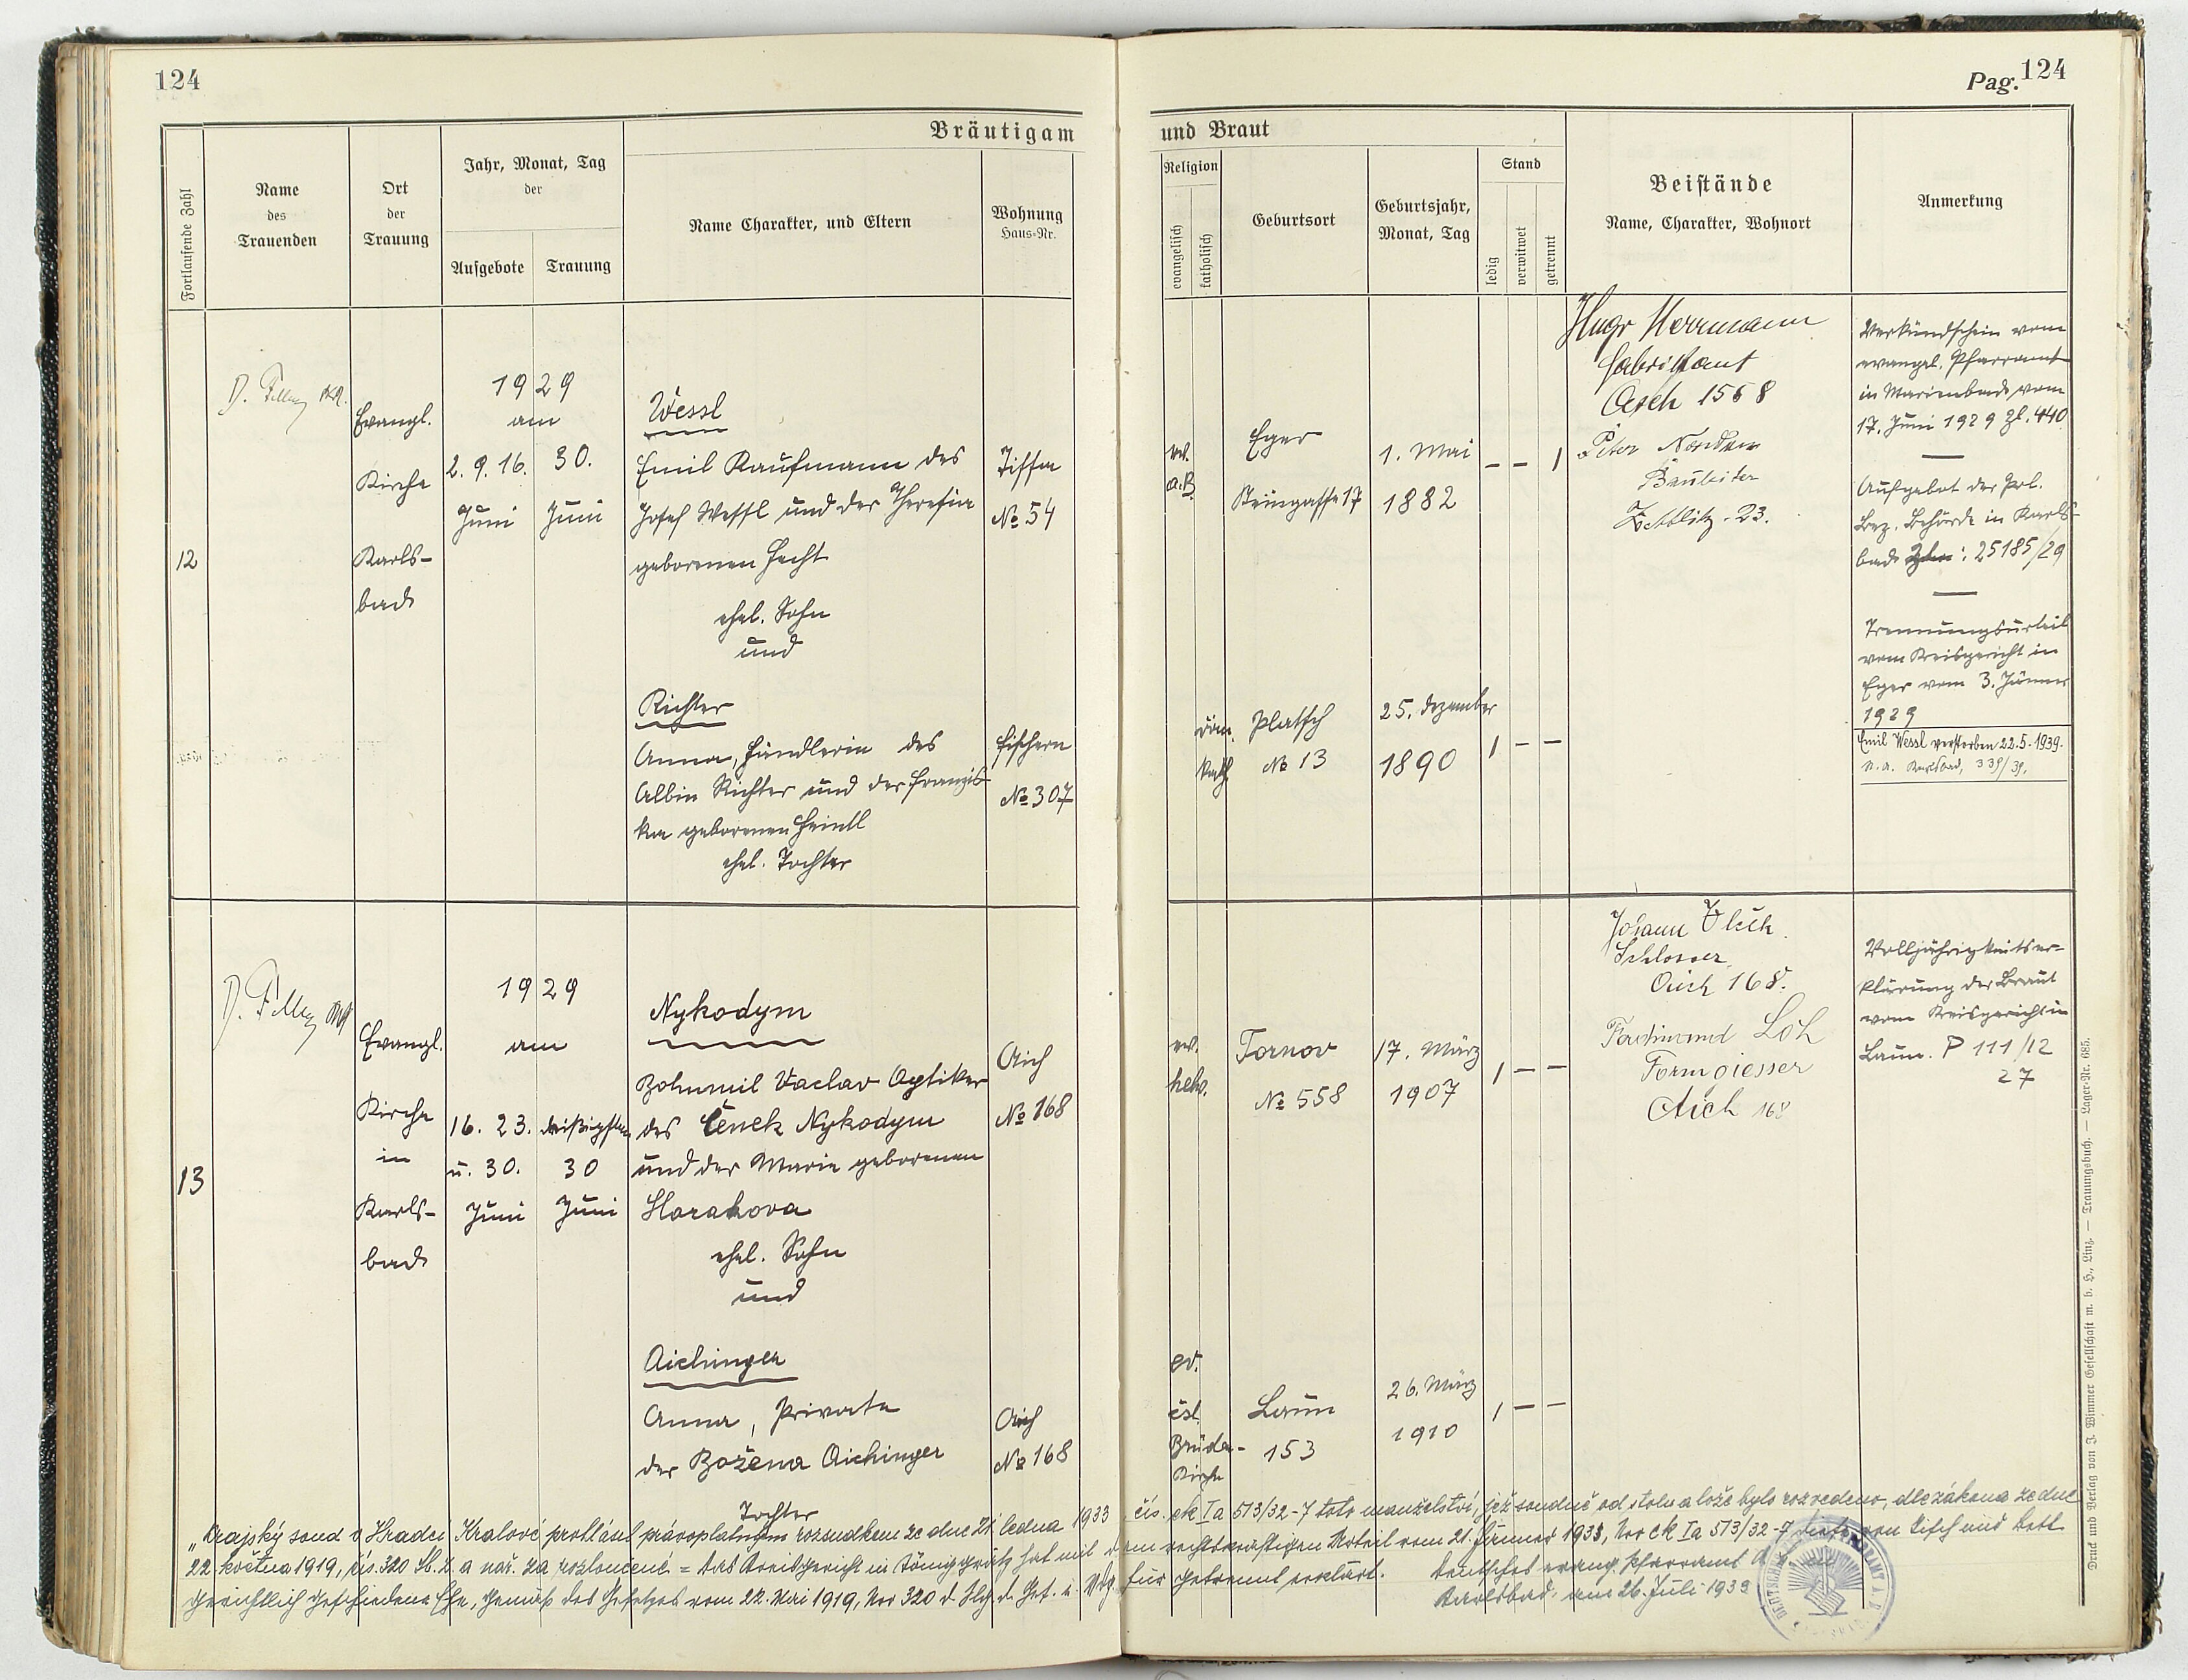 124
Pag. 124
Bräutigam und Braut
Fortlaufende Zahl
Name
des
Trauenden
Ort
der
Trauung
Jahr, Monat, Tag
der
Aufgebote
Trauung
Name Charakter, und Eltern
Wohnung
Haus-Nr.
Religion
evangelisch
katholisch
Geburtsort
Geburtsjahr,
Monat, Tag
Stand
ledig
verwitwet
getrennt
Beistände
Name, Charakter, Wohnort
Anmerkung
12
Evangl.
Kirche
Karls-
bad
1929
am
2. 9. 16.
Juni
30.
Juni
Wessl
Emil Kaufmann des
Josef Wessl und der Theresia
geborenen Hecht
ehel. Sohn
und
Tissa
No 54
ev.
A.B.
Eger
Steingasse 17
1. Mai
1882
– – 1
Hugo Herrmann
Fabrikant
Asch 1568
Peter
Bauleiter
Zettlitz 23.
Verkündschein vom
evangel. Pfarramt
in Marienbad vom
17. Juni 1929 Zl. 440
Aufgebot der Pol.
Bez. Behörde in Karls-
bad : 25185/29
Trennungsurteil
vom Kreisgericht in
Eger vom 3. Jänner
1929
Emil Wessl verstorben 22.5.1939.
Karlsbad, 339/39.
Richter
Anna, Händlerin des
Albin Richter und der Franzis-
ka geborenen Heindl
ehel. Tochter
Fischern
No 307
röm.
kath.
Platsch
No 13
25. Dezember
1890
1 – –
13
Evangl.
Kirche
in
Karls-
bad
1929
am
16. 23.
u. 30.
Juni
dreißigsten
30
Juni
Nykodym
Bohumil Vaclav Optiker
des Čeněk Nykodym
und der Marie geborenen
Horakova
ehel. Sohn
und
Aich
No 168
ev.
helv.
Tornov
No 558
17. März
1907
1 – –
Johann
Schlosser
Aich 168.
Ferdinand Loh
Formgiesser
Aich 168
Volljährigkeitser-
klärung der Braut
vom Kreisgericht in
Laun. P 111/12
27
Aichinger
Anna, Private
der Božena Aichinger
Tochter
Aich
No 168
ev.
čsl.
Brüder-
Kirche
Laun
153
26. März
1910
1 – –
„Krajský soud v Hradci Králové prohlásil právoplatným rozsudkem ze dne 21. ledna 1933 čís. ck Ia 513/32-7 toto manželství, jež soudně od stolu a lože bylo rozvedeno, dle zákona ze dne
22. května 1919, čís. 320 Sb. z. a nař. za rozloučené. = Das Kreisgericht in Königgrätz hat mit dem rechtskräftigen Urteil vom 21. Jänner 1933, Nro ck Ia 513/32-7 diese von Tisch und Bett
gerichtlich geschiedene Ehe, gemäß des Gesetzes vom 22. Mai 1919, Nro 320 d. Slg. d. Ges. u. Vdg. für getrennt erklärt. Deutsches evang. Pfarramt
Karlsbad, am 26. Juli 1933
Druck und Verlag von J. Wimmer Gesellschaft m. b. H., Linz. — Trauungsbuch. — Lager-Nr. 685.